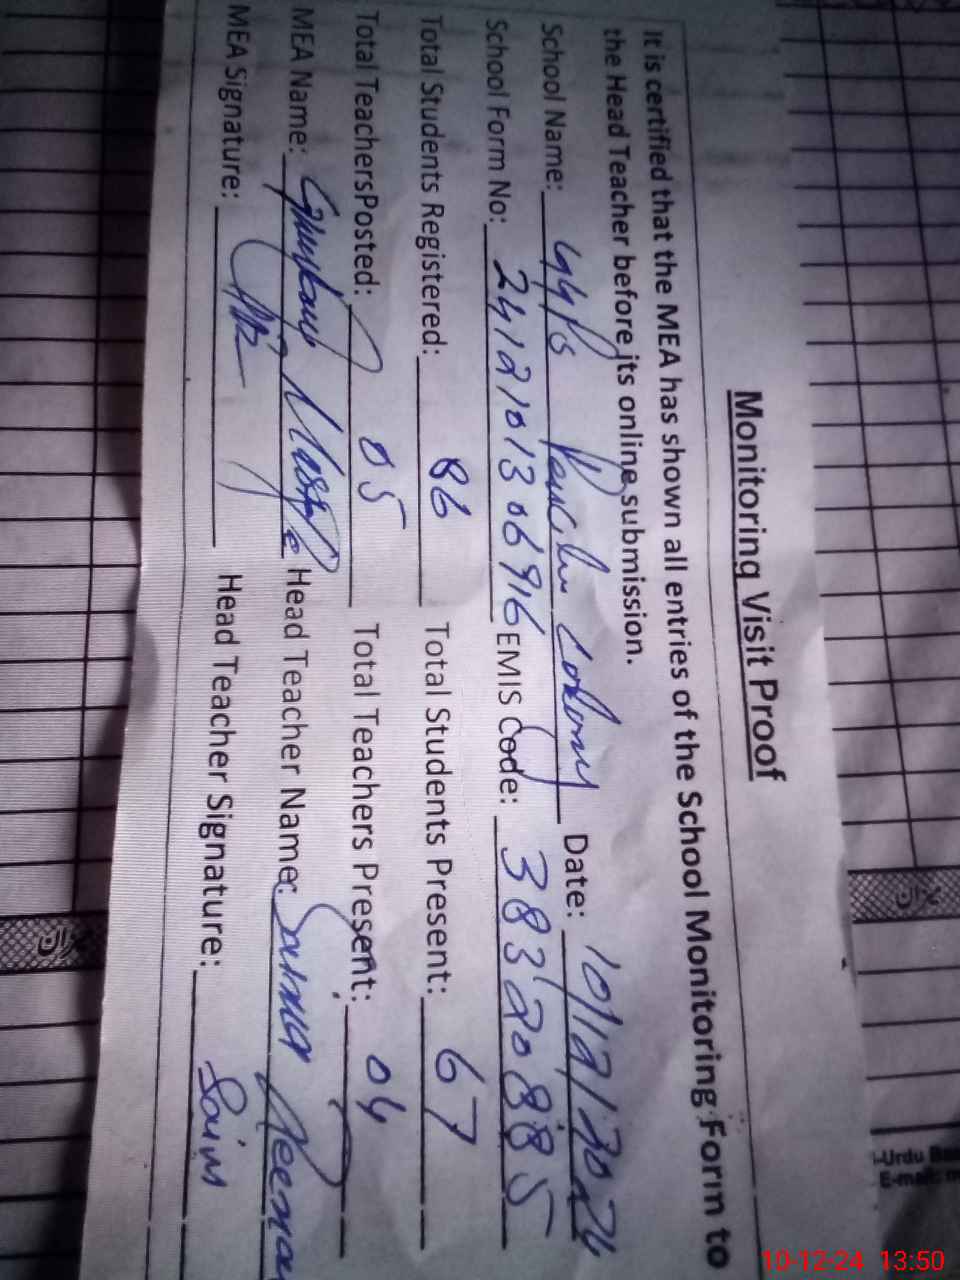 Monitoring Visit Proof
It is certified that the MEA has shown all entries of the School Monitoring Form to
the Head Teacher before its online submission.
School Name: GGPS Colony Date: 10/12/2024
School Form No: 2412101306916 EMIS Code: 38320885
Total Students Registered: 86 Total Students Present: 67
Total TeachersPosted: 05 Total Teachers Present: 04
MEA Name: Head Teacher Name: Saima
MEA Signature: Head Teacher Signature: Saim
-Urdu Ba
E-mail:
10-12-24 13:50